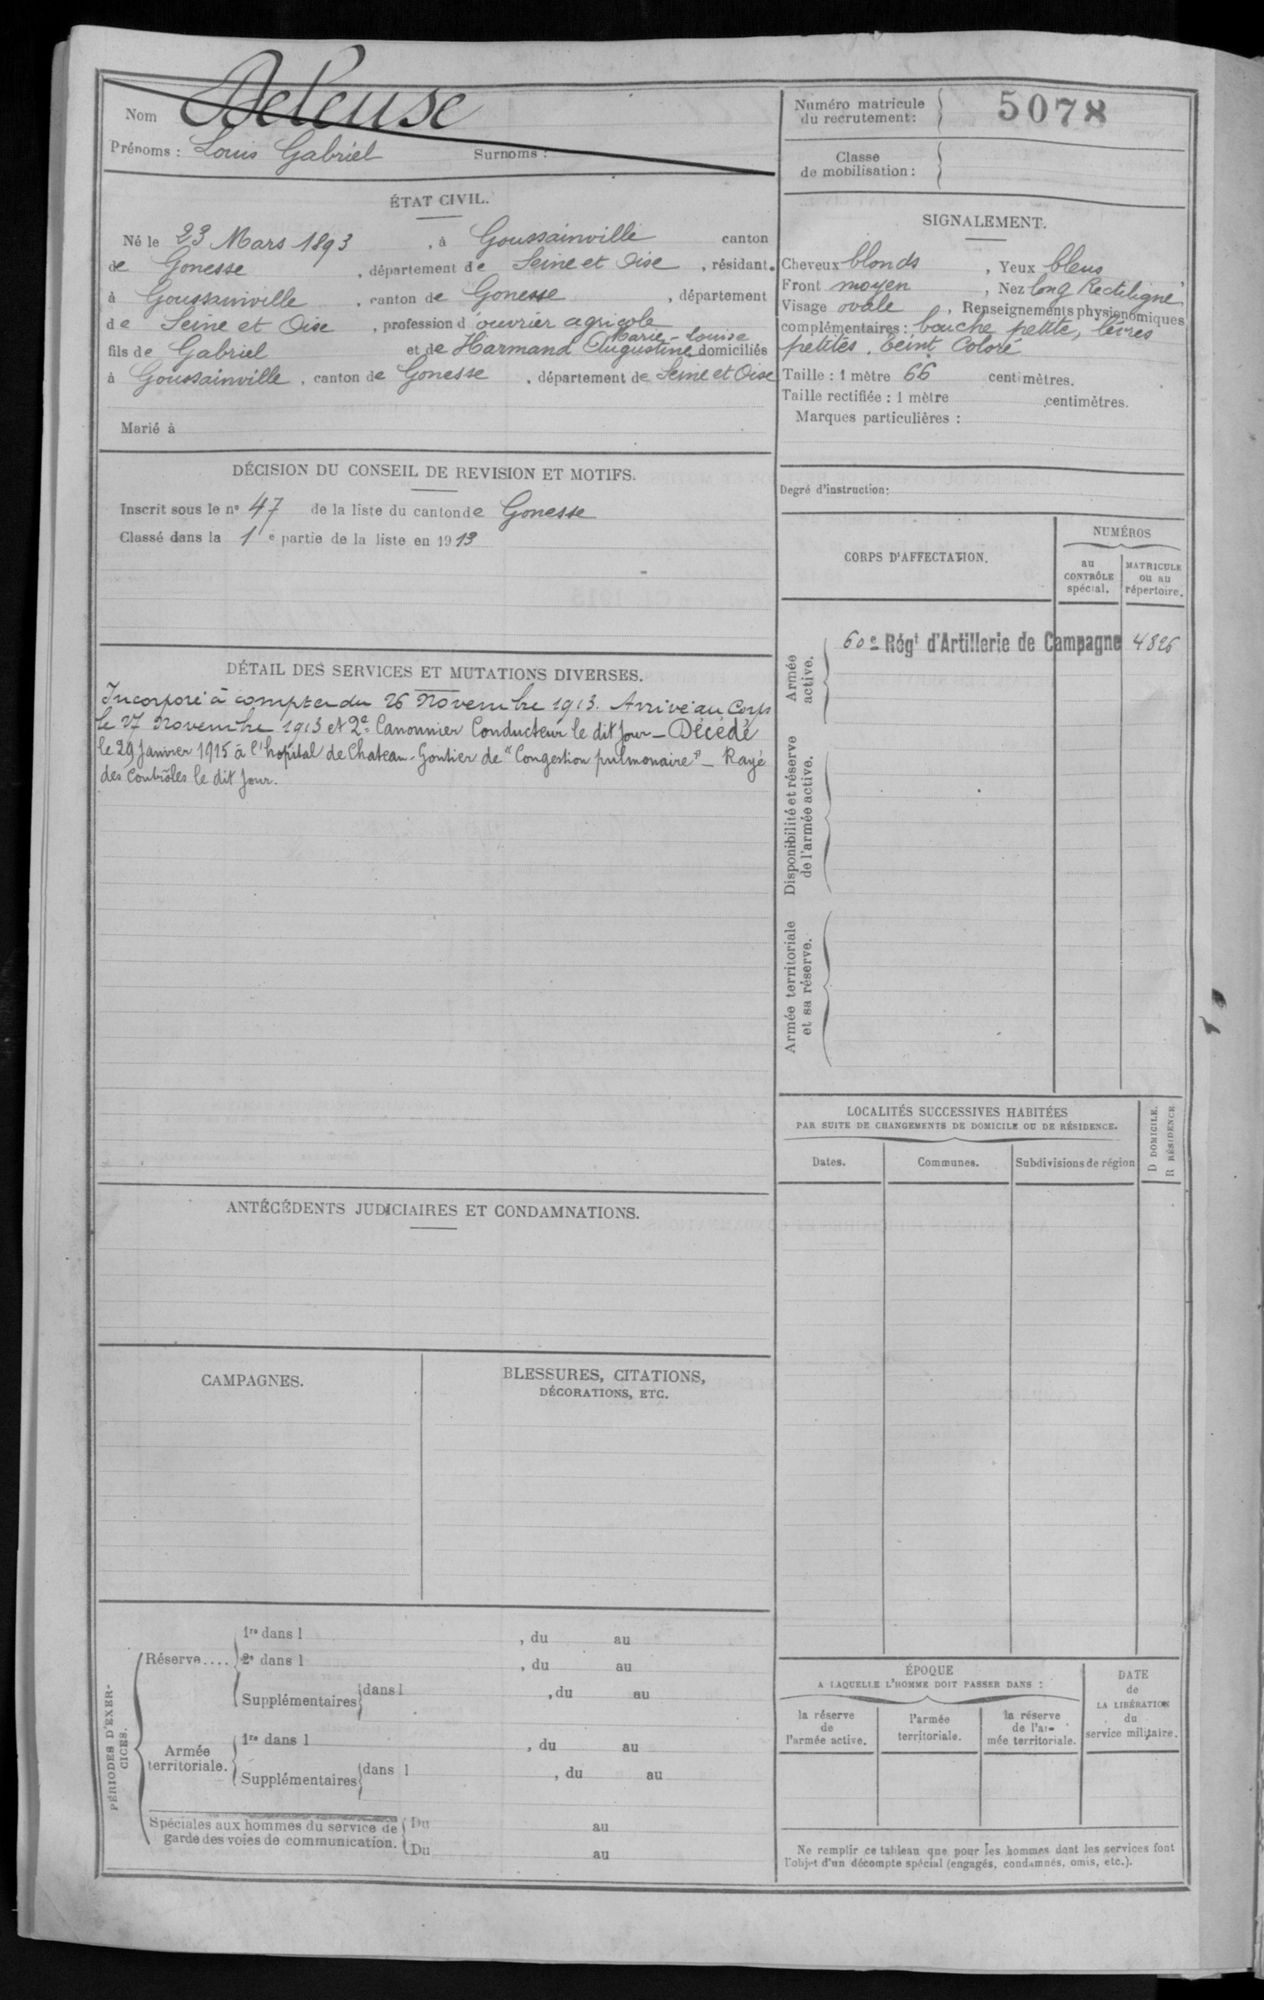 Nom Deleuse
Prénoms : Louis Gabriel Surnoms :
ÉTAT CIVIL.
Né le 23 Mars 1893, à Goussainville canton
de Gonesse, département de Seine et Oise, résidant
à Goussainville, canton de Gonesse, département
de Seine et Oise, profession d'ouvrier agricole
Marie-Louise
fils de Gabriel et de Harmand Augustine domiciliés
à Goussainville, canton de Gonesse, département de Seine et Oise
Marié à
DÉCISION DU CONSEIL DE REVISION ET MOTIFS.
Inscrit sous le n° 47 de la liste du canton de Gonesse
Classé dans la 1e partie de la liste en 1913
DÉTAIL DES SERVICES ET MUTATIONS DIVERSES.
Incorporé à compter du 26 Novembre 1913. Arrivé au Corps
le 27 Novembre 1913 et 2e Canonnier Conducteur le dit jour – Décédé
le 29 Janvier 1915 à l'hopital de Chateau-Gontier de "Congestion pulmonaire" – Rayé
des Contrôles le dit jour.
ANTÉCÉDENTS JUDICIAIRES ET CONDAMNATIONS.
CAMPAGNES.
BLESSURES, CITATIONS,
DÉCORATIONS, ETC.
PÉRIODES D'EXER-
CICES.
Réserve....
1re dans l , du au
2e dans l , du au
Supplémentaires dans l , du au
Armée
territoriale.
1re dans l , du au
Supplémentaires dans l , du au
Spéciales aux hommes du service de
garde des voies de communication.
Du au
Du au
Numéro matricule
du recrutement : 5078
Classe
de mobilisation :
SIGNALEMENT.
Cheveux blonds, Yeux bleus
Front moyen, Nez long Rectiligne
Visage ovale, Renseignements physionomiques
complémentaires : bouche petite, lèvres
petites. teint Coloré
Taille : 1 mètre 66 centimètres.
Taille rectifiée : 1 mètre centimètres.
Marques particulières :
Degré d'instruction :
CORPS D'AFFECTATION.
NUMÉROS
au
CONTRÔLE
spécial.
MATRICULE
ou au
répertoire.
Armée
active.
60e Régt d'Artillerie de Campagne 4826
Disponibilité et réserve
de l'armée active.
Armée territoriale
et sa réserve.
LOCALITÉS SUCCESSIVES HABITÉES
PAR SUITE DE CHANGEMENTS DE DOMICILE OU DE RÉSIDENCE.
D DOMICILE.
R RÉSIDENCE
Dates. Communes. Subdivisions de région
ÉPOQUE
A LAQUELLE L'HOMME DOIT PASSER DANS :
la réserve
de
l'armée active.
l'armée
territoriale.
la réserve
de l'ar-
mée territoriale.
DATE
de
LA LIBÉRATION
du
service militaire.
Ne remplir ce tableau que pour les hommes dont les services font
l'objet d'un décompte spécial (engagés, condamnés, omis, etc.).